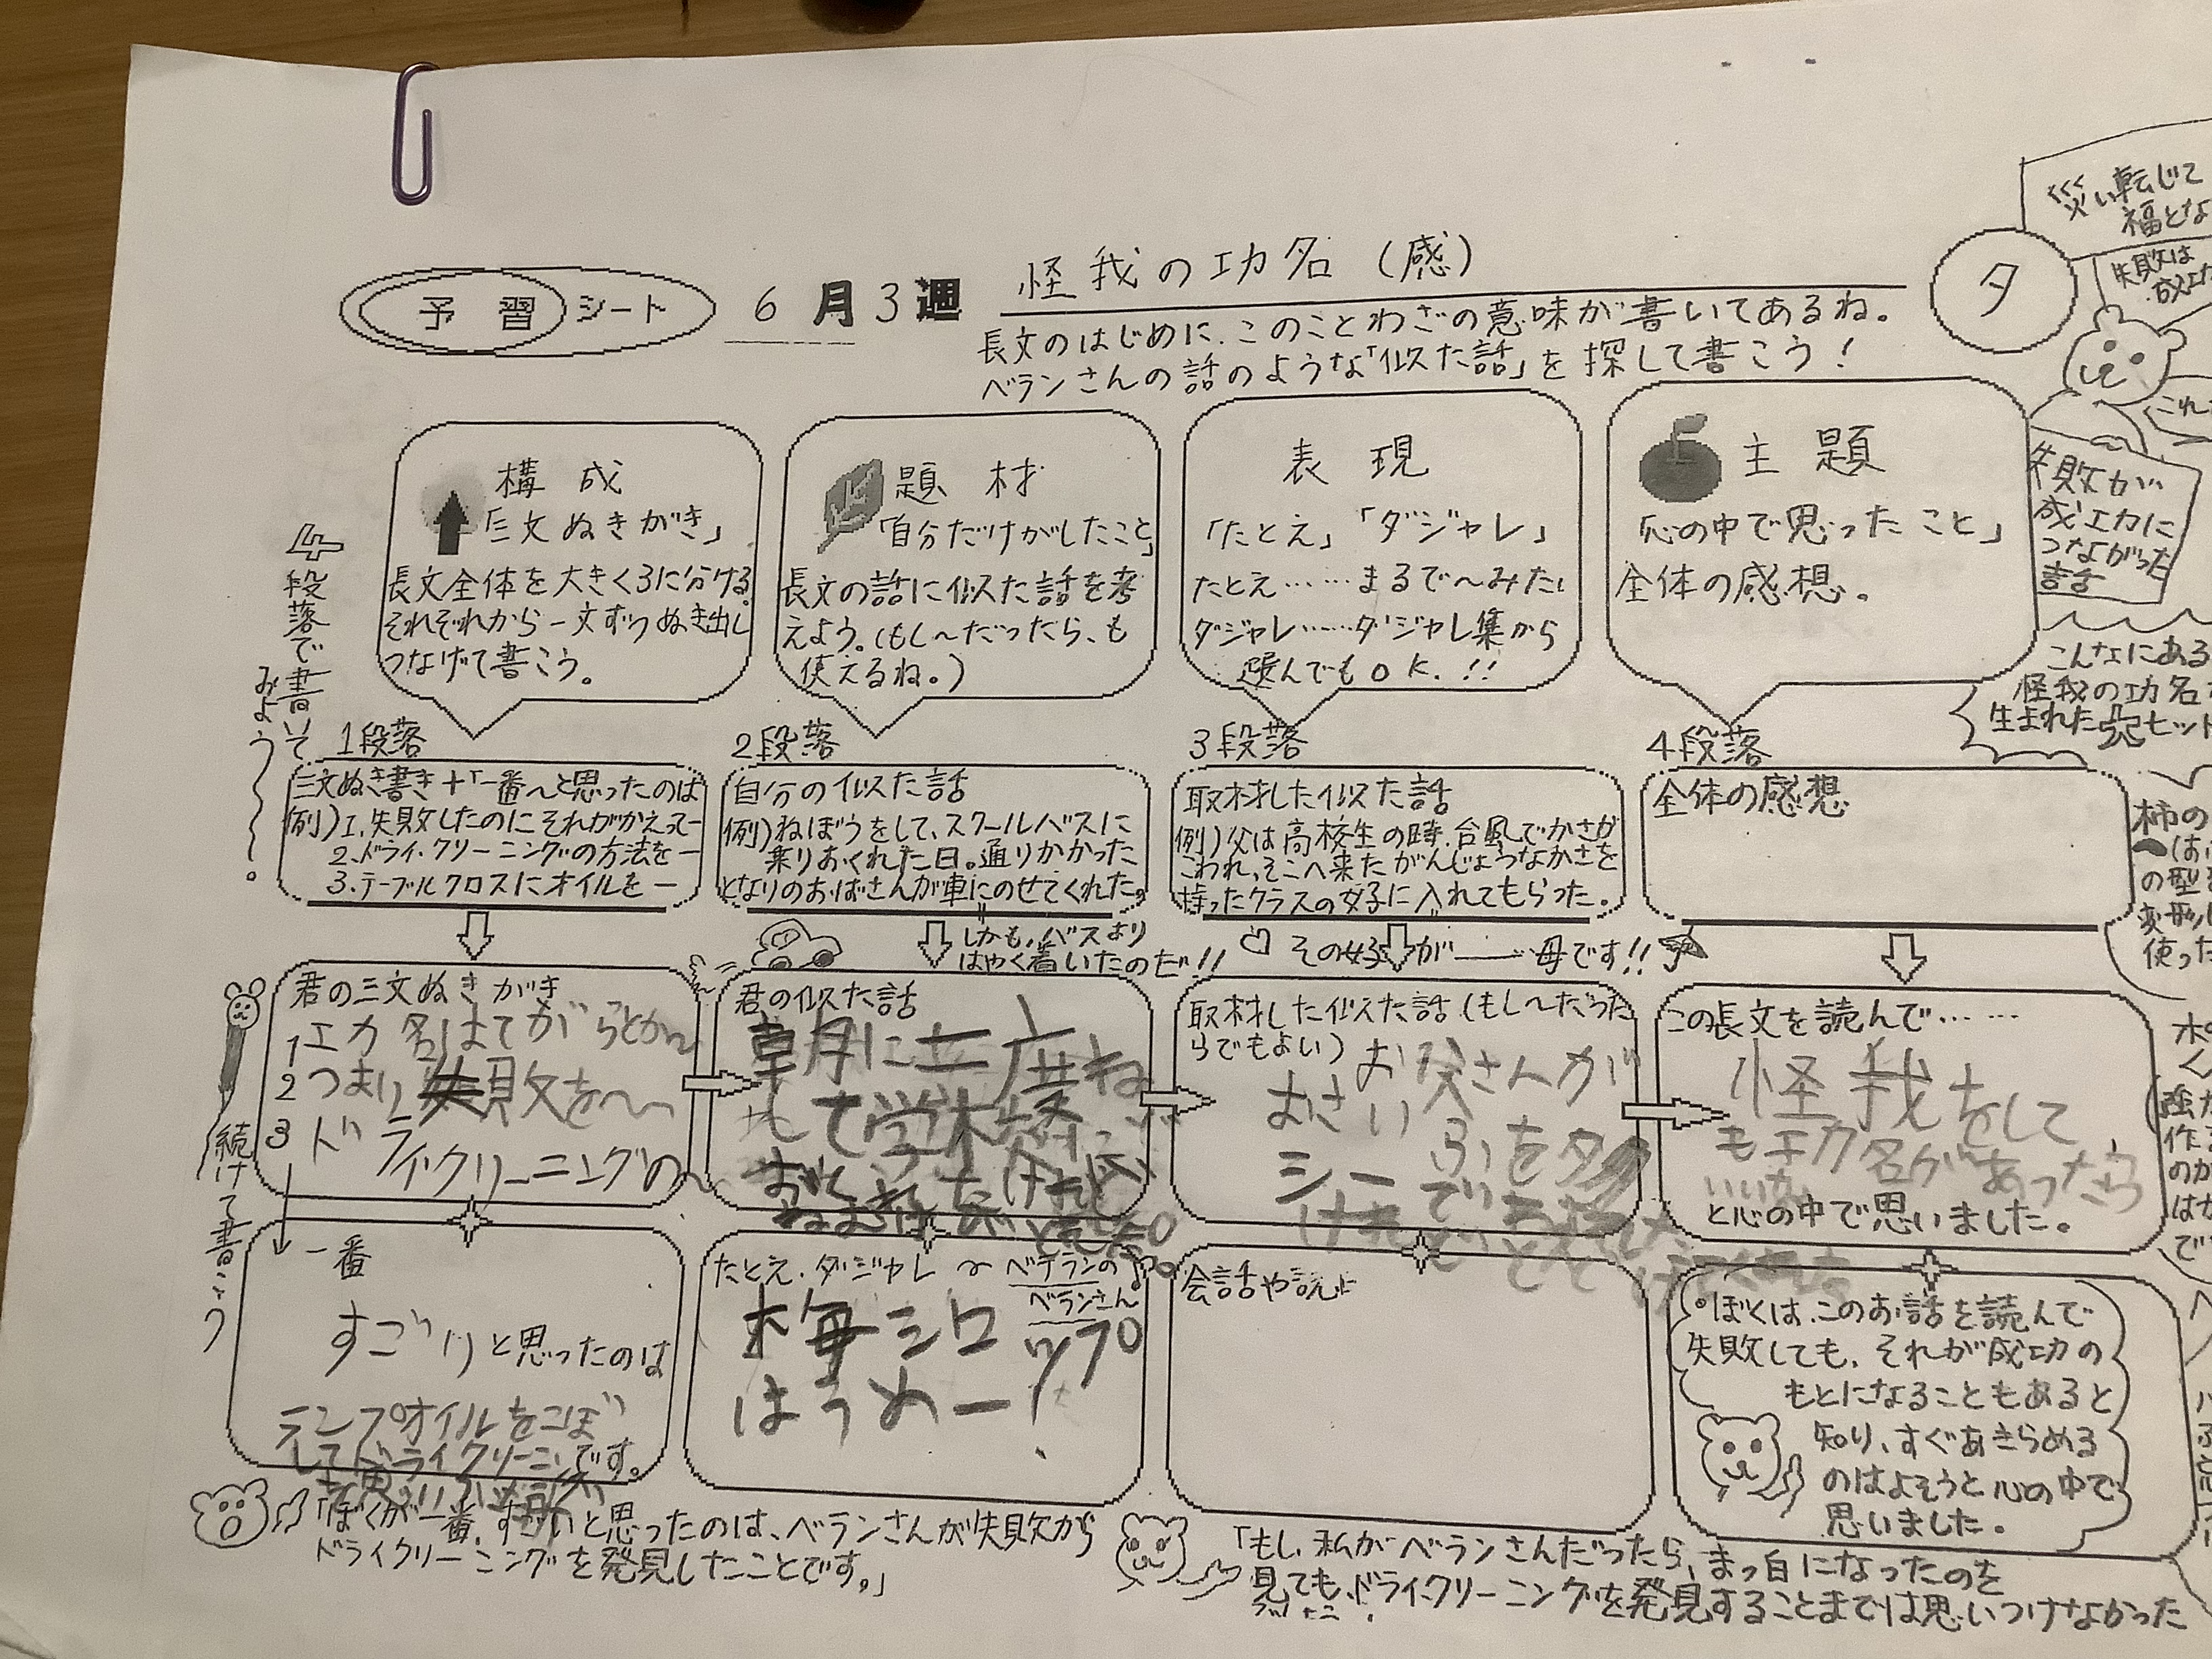 予習シート 6月3週 怪我の功名(感)
長文のはじめに、このことわざの意味が書いてあるね。
ベランさんの話のような「似た話」を探して書こう！
タ
災い転じて
福とな
失敗は
成功
これ
失敗が
成功に
つながった
話
こんなにある
怪我の功名
生まれた
ヒット
4段落で書いて
みよう〜〜。
構成
「三文ぬきがき」
長文全体を大きく3に分ける。
それぞれから一文ずつぬき出し
つなげて書こう。
題材
「自分だけがしたこと」
長文の話に似た話を考
えよう。(もし〜だったら、も
使えるね。)
表現
「たとえ」「ダジャレ」
たとえ……まるで〜みたい
ダジャレ……ダジャレ集から
選んでもOK.!!
主題
「心の中で思ったこと」
全体の感想。
1段落
三文ぬき書き+「一番〜と思ったのは
例)1.失敗したのにそれがかえって―
2.ドライ・クリーニングの方法を―
3.テーブルクロスにオイルを―
2段落
自分の似た話
例)ねぼうをして、スクールバスに
乗りおくれた日。通りかかった
となりのおばさんが車にのせてくれた。
しかも、バスより
はやく着いたのだ!!
3段落
取材した似た話
例)父は高校生の時、台風でかさが
こわれ、そこへ来たがんじょうなかさを
持ったクラスの女子に入れてもらった。
その女子が――母です!!
4段落
全体の感想
続けて書こう
君の三文ぬきがき
1 功名はてがらとか〜
2 つまり失敗を〜
3 ドライクリーニングの〜
君の似た話
朝に二度ね
して学校に
取材した似た話(もし〜だった
らでもよい)
お父さんが
おさいふをタク
シーで
けれど
この長文を読んで……
怪我をして
も功名があったら
いいな
と心の中で思いました。
一番
すごいと思ったのは
ランプオイルをこぼ
してドライクリーニ
です。
たとえ・ダジャレ
ベテランの
ベランさん
梅シロップ
はうめー！
会話や説
ぼくは、このお話を読んで
失敗しても、それが成功の
もとになることもあると
知り、すぐあきらめる
のはよそうと心の中で
思いました。
「ぼくが一番、すごいと思ったのは、ベランさんが失敗から
ドライクリーニングを発見したことです。」
「もし、私がベランさんだったら、まっ白になったのを
見ても、ドライクリーニングを発見することまでは思いつけなかった
柿の
の型
使った